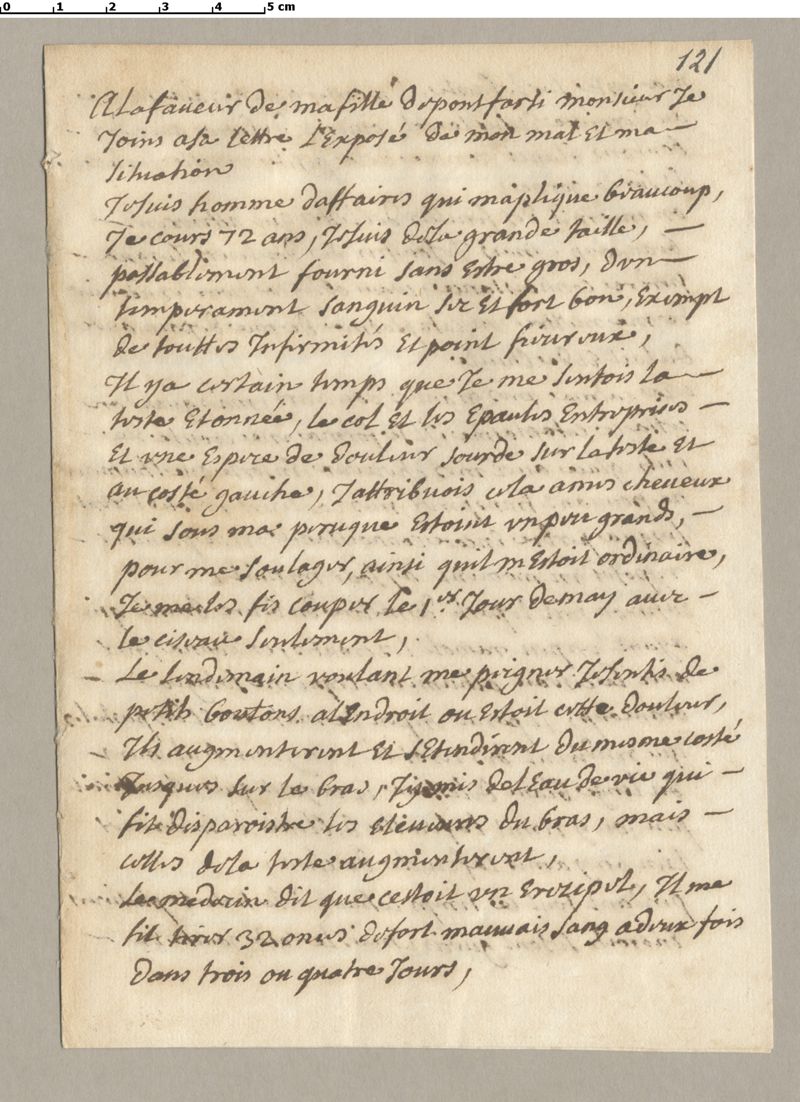 0 1 2 3 4 5 cm
121
A la faveur de ma fille depontfarsi monsieur Je
Joins asa lettre l'Exposé de mon mal Et ma
situation
Je suis homme daffaires qui maplique beaucoup,
Je cours 72 ans, Je suis dela grande taille,
passablement fourni sans Estre gros, dun
temperament sanguin sec Et fort bon, Exempt
de touttes Infirmités Et point fieureux,
Il ya certain temps que Je me sentois la
teste Etonnée, le col Et les Epaules Entreprises
Et une Espece de douleur sourde sur la teste Et
au costé gauche, J'attribuois cela a mes cheueux
qui sous ma peruque Estoint un peu grands,
pour me soulager, ainsi quil m'Estoit ordinaire,
Je me les fis couper le 1er Jour de may avec
le ciseau seulement,
Le lendemain voulant me peigner Je sentis de
petits boutons a l'Endroit ou Estoit cette douleur,
Ils augmenterent Et s'Etendirent du mesme costé
Jusques sur le bras, J'y mis de l'Eau de vie qui
fit disparoistre les eleuures du bras, mais
celles dela teste augmenterent,
Le medecin dit que cestoit un Erezipel, Il me
fit tirer 32 onces de fort mauvais sang a deux fois
dans trois ou quatre Jours,